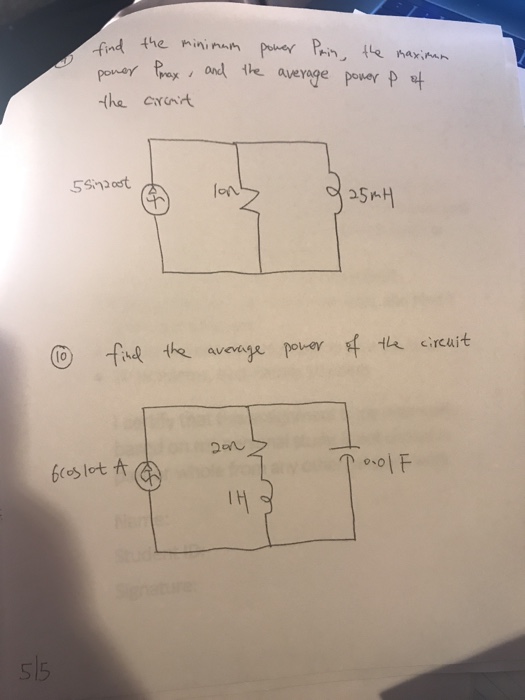 find the minimum power Pmin, the maximum
power Pmax, and the average power P of
the circuit
5sin200t
10Ω
25mH
10 find the average power of the circuit
6cos10t A
20Ω
0.01F
1H
Name:
Student ID:
Signature:
5/5